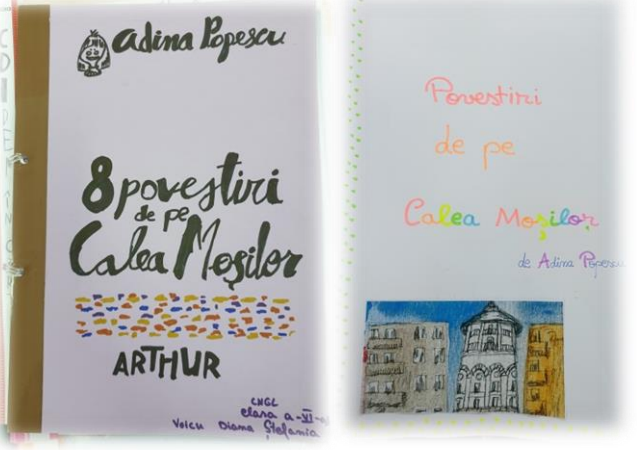 Adina Popescu
8 povestiri
de pe
Calea Moșilor
ARTHUR
CNGL
clasa a-VI-a
Voicu Diana Ștefania
Povestiri
de pe
Calea Moșilor
de Adina Popescu